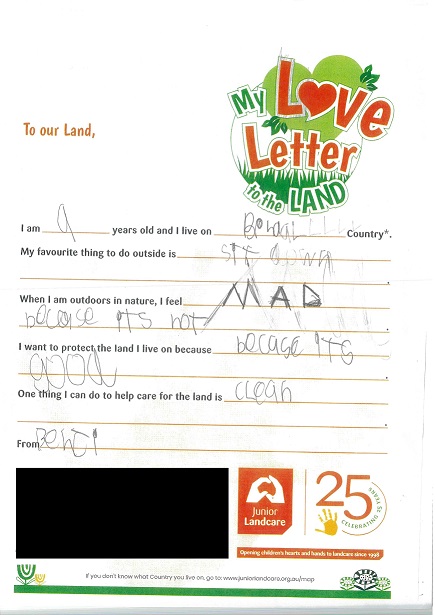 My Love Letter to the LAND
To our Land,
I am 9 years old and I live on Country*.
My favourite thing to do outside is sit down
.
When I am outdoors in nature, I feel MAD
becose its hot .
I want to protect the land I live on because becase its
good .
One thing I can do to help care for the land is clean
.
From
Junior
Landcare
25 YEARS
CELEBRATING 25 YEARS
Opening children's hearts and hands to landcare since 1998
If you don't know what Country you live on, go to: www.juniorlandcare.org.au/map